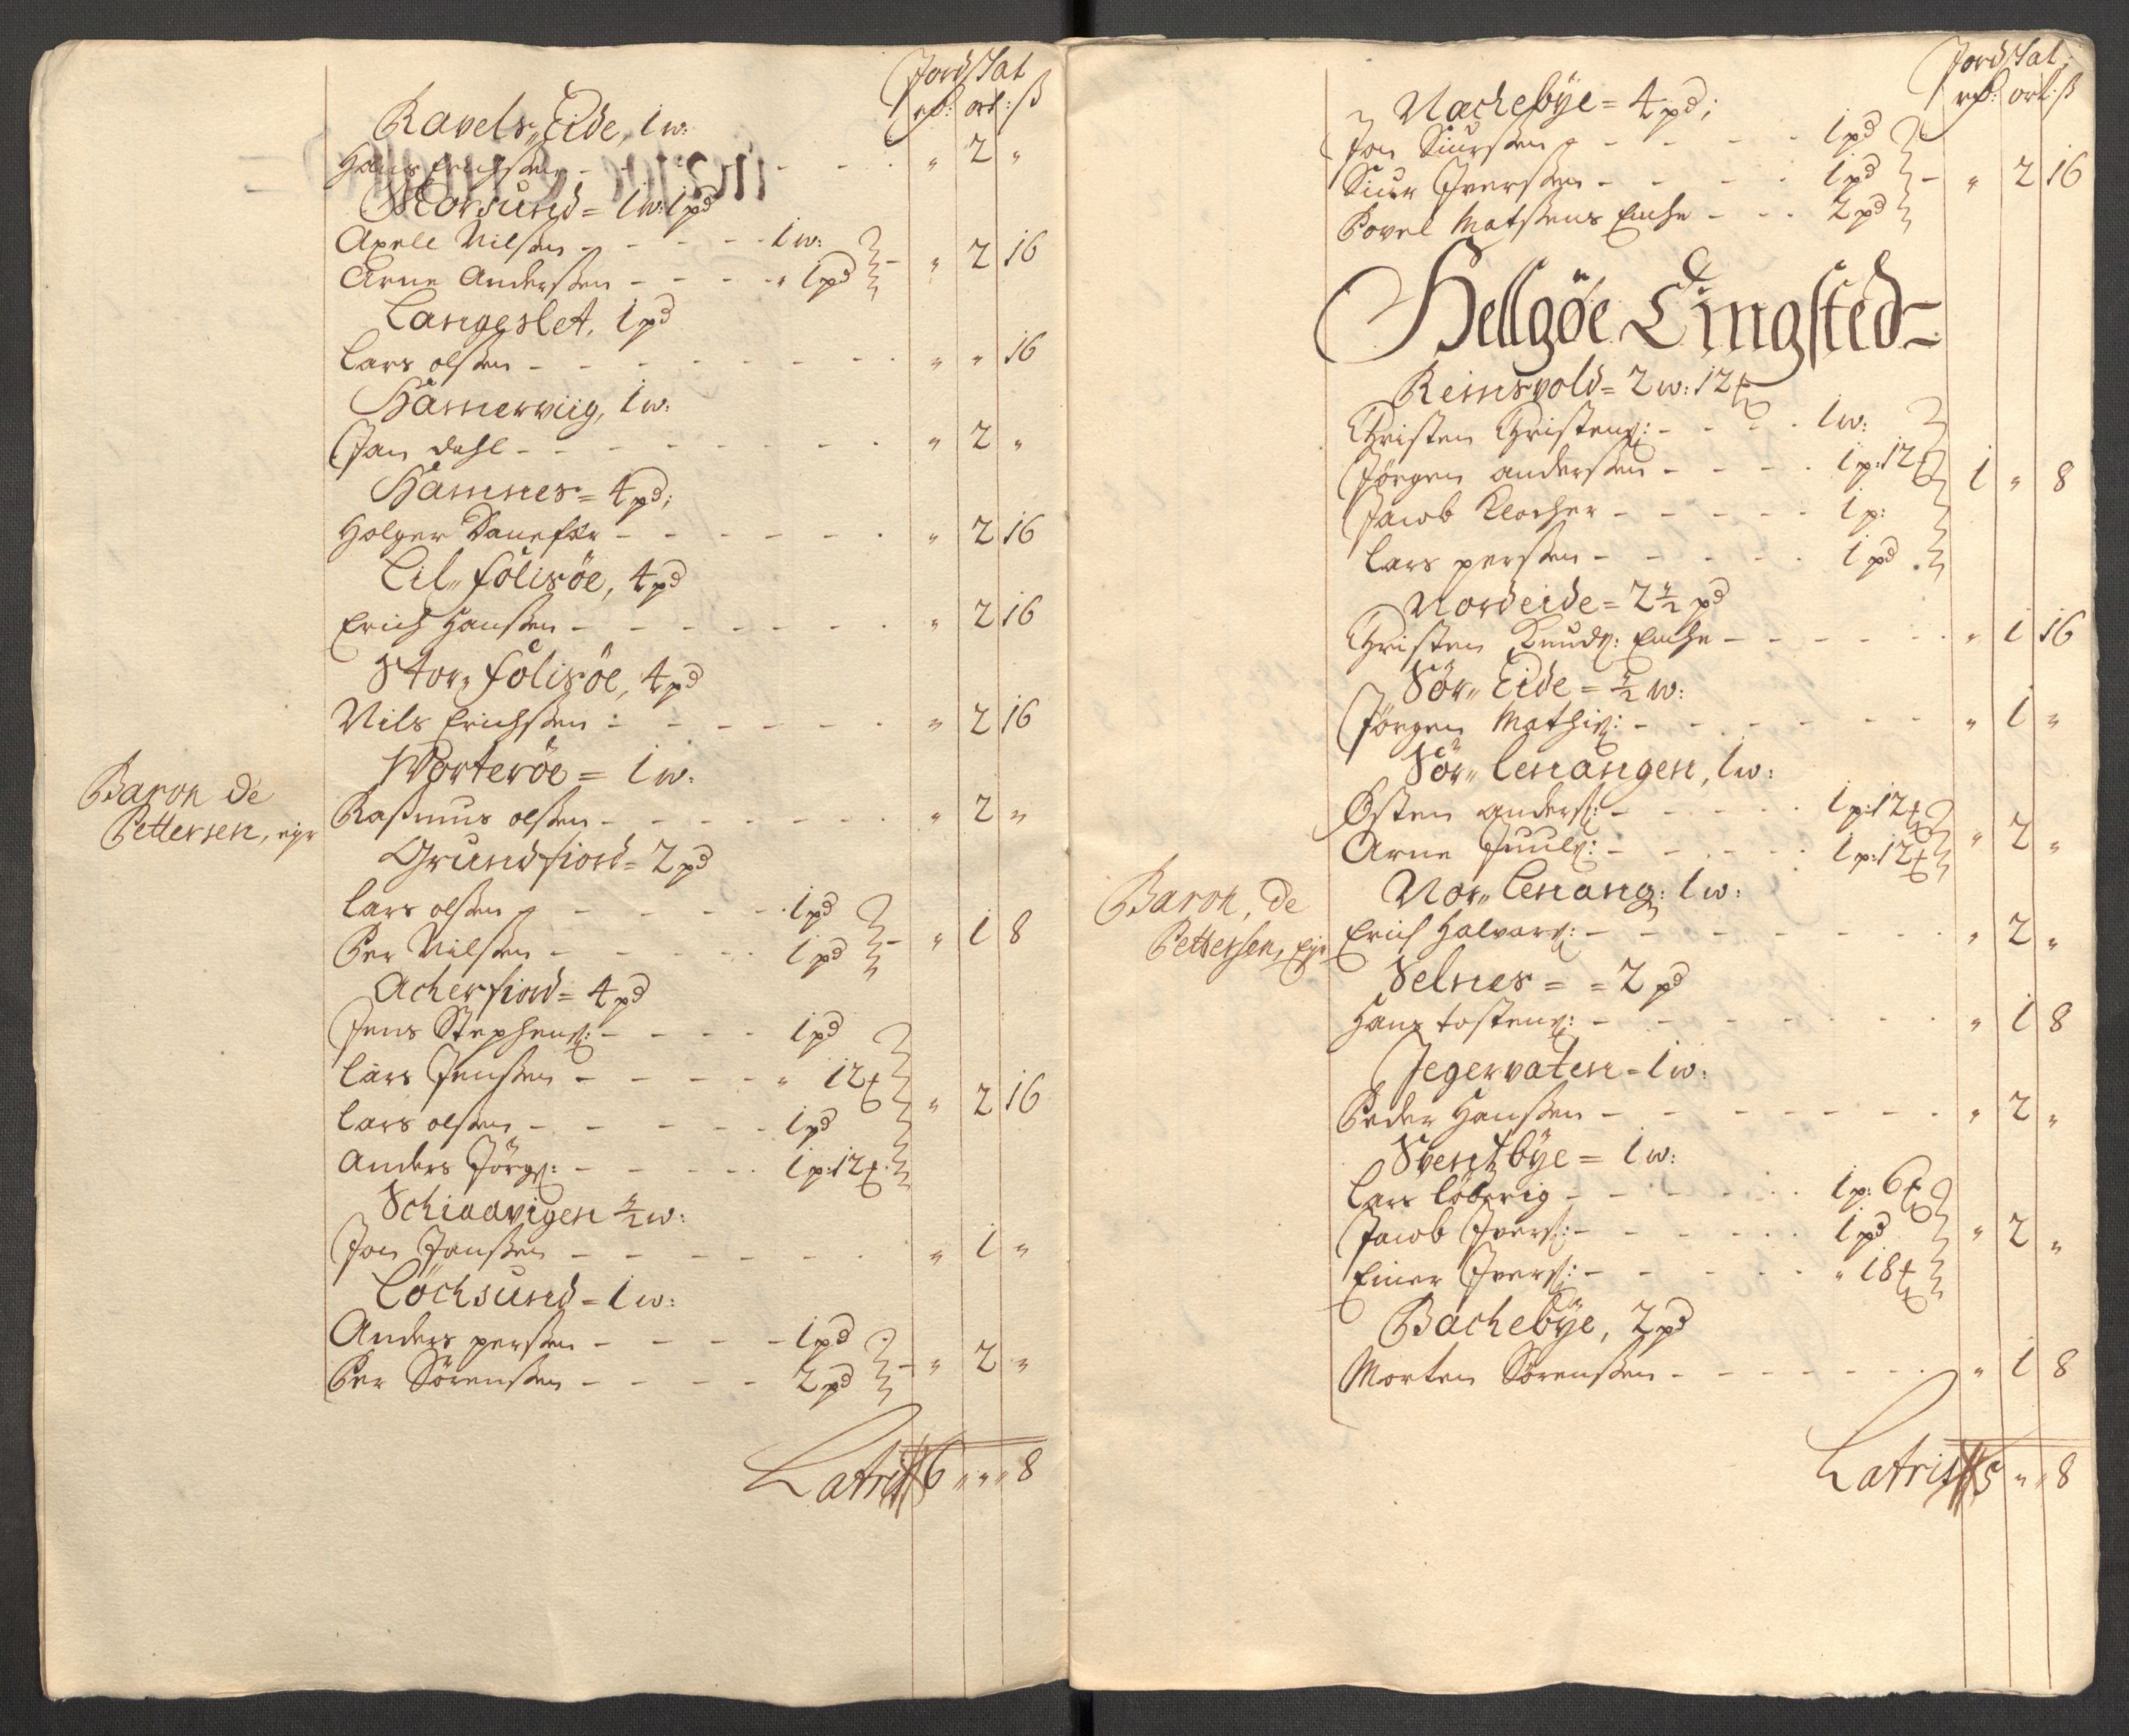 Jord Skat
rd: ort: ß
Ravels Eide, 1 w:
Hans Erichssen - - - - " 2 "
Morsund = 1 w: 1 pd
Axell Nilssen - - - - 1 w:
Arne Anderssen - - - " 1 pd - " 2 16
Langeslet, 1 pd
Lars olssen - - - - " " 16
Hamerviig, 1 w:
Jan Dahl - - - - " 2 "
Hamnes = 4 pd;
Holger - - - - " 2 16
Lil, folisöe, 4 pd
Erich Hanssen - - - - " 2 16
Stor, folisöe, 4 pd
Nils Erichssen - - - - " 2 16
Worteröe = 1 w:
Baron de
Pettersen, eyr
Rasmus olssen - - - - " 2 "
Grundfiord = 2 pd
Lars olssen - - - - 1 pd
Per Nilssen - - - - 1 pd - " 1 8
Acherfiord = 4 pd
Jens Stephens: - - - - 1 pd
Lars Jenssen - - - - " 12 ℔
Lars olssen - - - - 1 pd " 2 16
Anders Jörgs: - - - - 1 p: 12 ℔
Schiaavigen ½ w:
Jon Janssen - - - - " 1 "
Löchsund = 1 w:
Anders perssen - - - - 1 pd
Per Sörenssen - - - - 2 pd - " 2 "
Latris 6 " " 8
Jord Skat
rd: ort: ß
Nachebÿe = 4 pd;
Jon Siurssen - - - - 1 pd
Siur Iverssen - - - - 1 pd - " 2 16
Povel Matssens Enche - - 2 pd
Hellgöe Tingsted =
Reinsvold = 2 w: 12 ℔
Christen Christens: - - - - 1 w:
Jörgen anderssen - - - - 1 p: 12 ℔ 1 " 8
Jacob Klocher - - - - 1 p:
Lars perssen - - - - 1 pd
Nordeide = 2 ½ pd
Christen Knuds: Enche - - - - " 1 16
Sör, Eide = ½ w:
Jörgen Mathis: - - - - " 1 "
Sör, Lenangen, 1 w:
Östen anders: - - - - 1 p: 12 ℔
Arne Juuls: - - - - 1 p: 12 ℔ " 2 "
Nor, Lenang: 1 w:
Baron, de
Pettersen, Eyr
Erich Halvors: - - - - " 2 "
Selnes = = 2 pd
Hans tostens: - - - - " 1 8
Jegervaten = 1 w:
Peder Hanssen - - - - " 2 "
Sventzbÿe = 1 w:
Lars löberig - - - - 1 p: 6 ℔
Jacob Ivers: - - - - 1 pd " 2 "
Einer Ivers: - - - - " 18 ℔
Bachebÿe, 2 pd
Morten Sörenssen - - - - " 1 8
Latris 5 " " 8